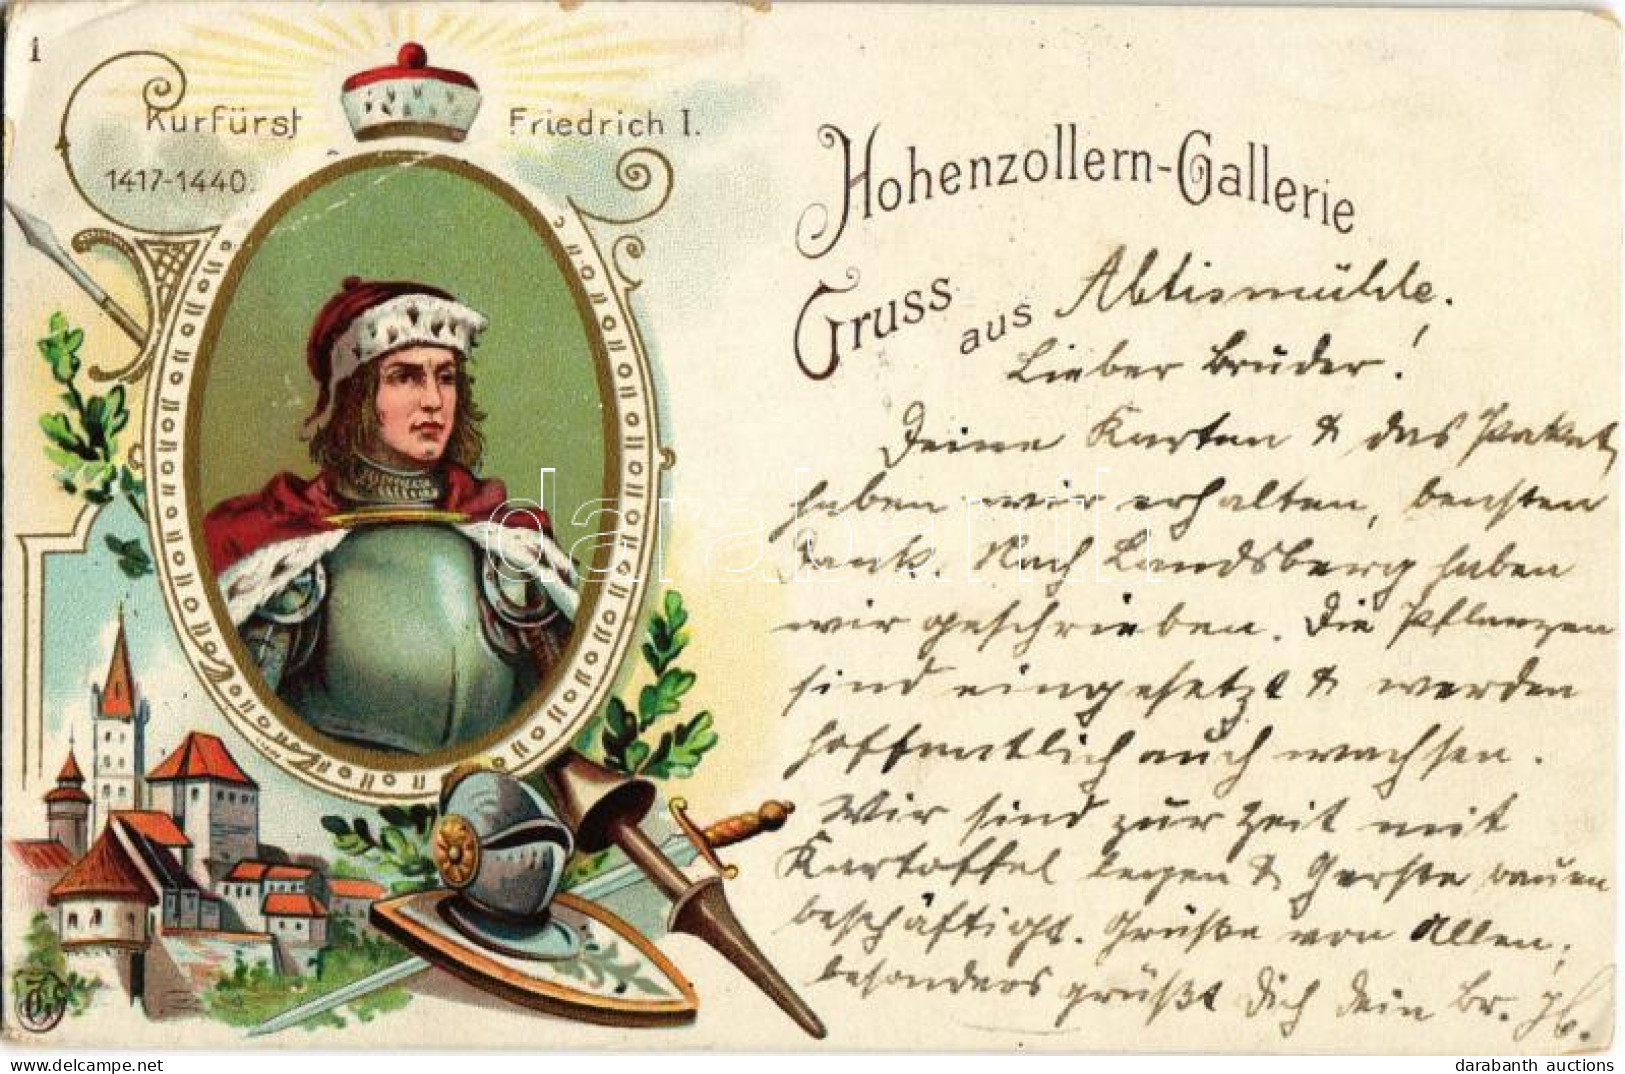 1
Kurfürst Friedrich I.
1417-1440.
Hohenzollern-Gallerie
Gruss aus Abtismühle.
Lieber Bruder!
Deine Karten & das Paket
haben wir erhalten, bensten
Dank. Nach Landsberg haben
wir geschrieben. Die Pflanzen
sind eingesetzt & werden
hoffentlich auch wachsen.
Wir sind zur Zeit mit
Kartoffel legen & Gerste bauen
beschäftigt. Grüße von Allen,
besonders grüßt Dich Dein Br.
darabanth
darabanth auctions